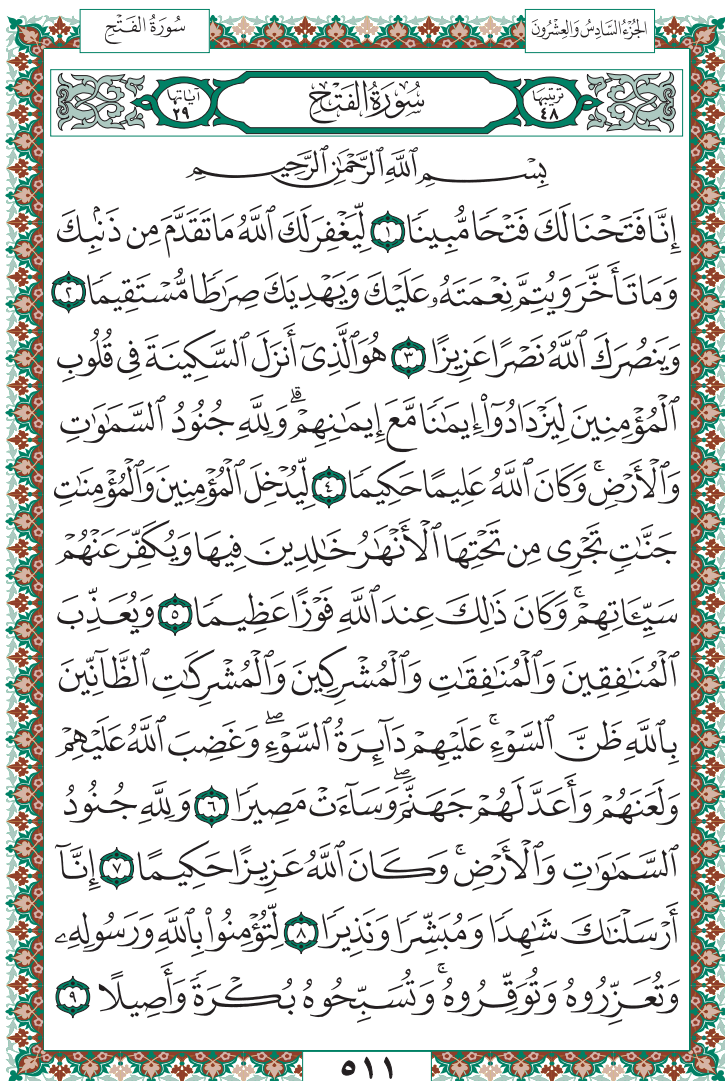 الجُزْءُ السَّادِسُ وَالعِشْرُونَ
سُورَةُ الفَتْحِ
تَرتيبُهَا ٤٨
سُورَةُ الفَتْحِ
آيَاتُهَا ٢٩
بِسْمِ ٱللَّهِ ٱلرَّحْمَٰنِ ٱلرَّحِيمِ
إِنَّا فَتَحْنَا لَكَ فَتْحًا مُّبِينًا ١ لِّيَغْفِرَ لَكَ ٱللَّهُ مَا تَقَدَّمَ مِن ذَنۢبِكَ
وَمَا تَأَخَّرَ وَيُتِمَّ نِعْمَتَهُۥ عَلَيْكَ وَيَهْدِيَكَ صِرَٰطًا مُّسْتَقِيمًا ٢
وَيَنصُرَكَ ٱللَّهُ نَصْرًا عَزِيزًا ٣ هُوَ ٱلَّذِىٓ أَنزَلَ ٱلسَّكِينَةَ فِى قُلُوبِ
ٱلْمُؤْمِنِينَ لِيَزْدَادُوٓا۟ إِيمَٰنًا مَّعَ إِيمَٰنِهِمْ ۗ وَلِلَّهِ جُنُودُ ٱلسَّمَٰوَٰتِ
وَٱلْأَرْضِ ۚ وَكَانَ ٱللَّهُ عَلِيمًا حَكِيمًا ٤ لِّيُدْخِلَ ٱلْمُؤْمِنِينَ وَٱلْمُؤْمِنَٰتِ
جَنَّٰتٍ تَجْرِى مِن تَحْتِهَا ٱلْأَنْهَٰرُ خَٰلِدِينَ فِيهَا وَيُكَفِّرَ عَنْهُمْ
سَيِّـَٔاتِهِمْ ۚ وَكَانَ ذَٰلِكَ عِندَ ٱللَّهِ فَوْزًا عَظِيمًا ٥ وَيُعَذِّبَ
ٱلْمُنَٰفِقِينَ وَٱلْمُنَٰفِقَٰتِ وَٱلْمُشْرِكِينَ وَٱلْمُشْرِكَٰتِ ٱلظَّآنِّينَ
بِٱللَّهِ ظَنَّ ٱلسَّوْءِ ۚ عَلَيْهِمْ دَآئِرَةُ ٱلسَّوْءِ ۖ وَغَضِبَ ٱللَّهُ عَلَيْهِمْ
وَلَعَنَهُمْ وَأَعَدَّ لَهُمْ جَهَنَّمَ ۖ وَسَآءَتْ مَصِيرًا ٦ وَلِلَّهِ جُنُودُ
ٱلسَّمَٰوَٰتِ وَٱلْأَرْضِ ۚ وَكَانَ ٱللَّهُ عَزِيزًا حَكِيمًا ٧ إِنَّآ
أَرْسَلْنَٰكَ شَٰهِدًا وَمُبَشِّرًا وَنَذِيرًا ٨ لِّتُؤْمِنُوا۟ بِٱللَّهِ وَرَسُولِهِۦ
وَتُعَزِّرُوهُ وَتُوَقِّرُوهُ ۚ وَتُسَبِّحُوهُ بُكْرَةً وَأَصِيلًا ٩
٥١١